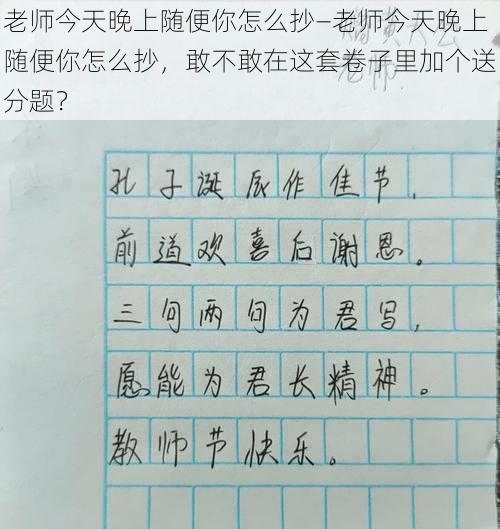 老师今天晚上随便你怎么抄—老师今天晚上
随便你怎么抄，敢不敢在这套卷子里加个送
分题？
老师
孔子诞辰作佳节，
前道欢喜后谢恩。
三句两句为君写，
愿能为君长精神。
教师节快乐。